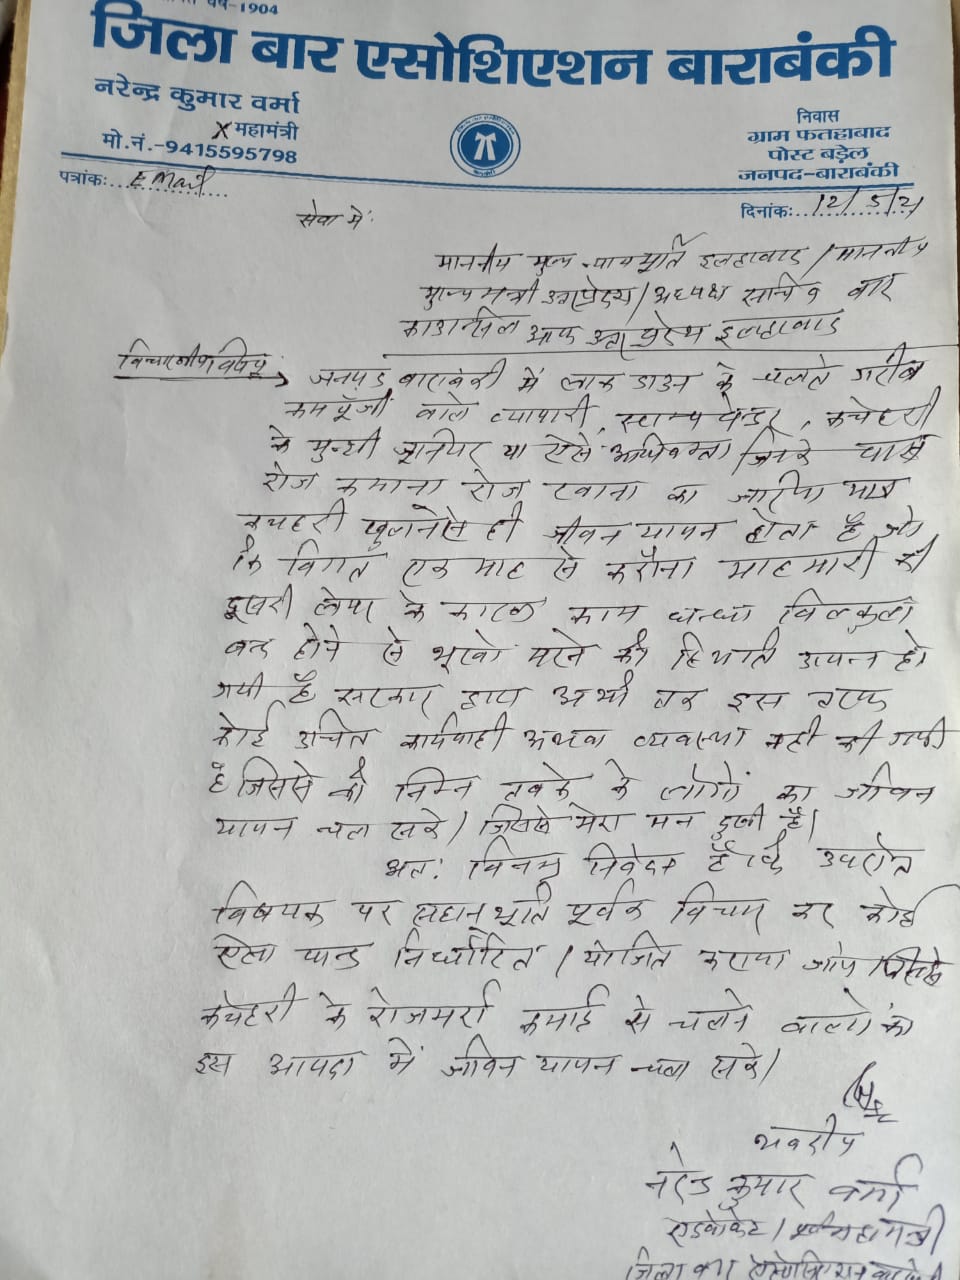 वर्ष-1904
जिला बार एसोशिएशन बाराबंकी
नरेन्द्र कुमार वर्मा
X महामंत्री
मो.नं.-9415595798
निवास
ग्राम फतहाबाद
पोस्ट बड़ेल
जनपद-बाराबंकी
पत्रांक:... E Mail
दिनांक:... 12/5/21
सेवा में:
माननीय मुख्य न्यायमूर्ति इलाहाबाद / माननीय
मुख्य मन्त्री उत्तर प्रदेश / अध्यक्ष सचिव बार
काउन्सिल आफ उत्तर प्रदेश इलाहाबाद
विचारणीय विषय:
जनपद बाराबंकी में लाक डाउन के चलते गरीब
कम पूँजी वाले व्यापारी, स्टाम्प वेन्डर, कचेहरी
के मुन्शी जूनियर या ऐसे अधिवक्ता जिनके पास
रोज कमाना रोज खाना का जरिया मात्र
कचहरी खुलने से ही जीवन यापन होता है जो
कि विगत एक माह से करोना माहमारी की
दूसरी लहर के कारण काम धन्धा बिलकुल
बन्द होने से भूखो मरने की स्थिति उत्पन्न हो
गयी है सरकार द्वारा अभी तक इस तरफ
कोई उचित कार्यवाही अथवा व्यवस्था नही की गयी
है जिससे की निम्न तबके के लोगों का जीवन
यापन चल सके। जिससे मेरा मन दुखी है।
अत: विनम्र निवेदन है कि उपरोक्त
विषयक पर सहानुभूति पूर्वक विचार कर कोई
ऐसा फन्ड निर्धारित / योजित कराया जाय जिससे
कचेहरी के रोजमर्रा कमाई से चलने वालो का
इस आपदा में जीवन यापन चल सके।
भवदीय
नरेन्द्र कुमार वर्मा
एडवोकेट / पूर्व महामन्त्री
जिला बार ऐसोसिएशन